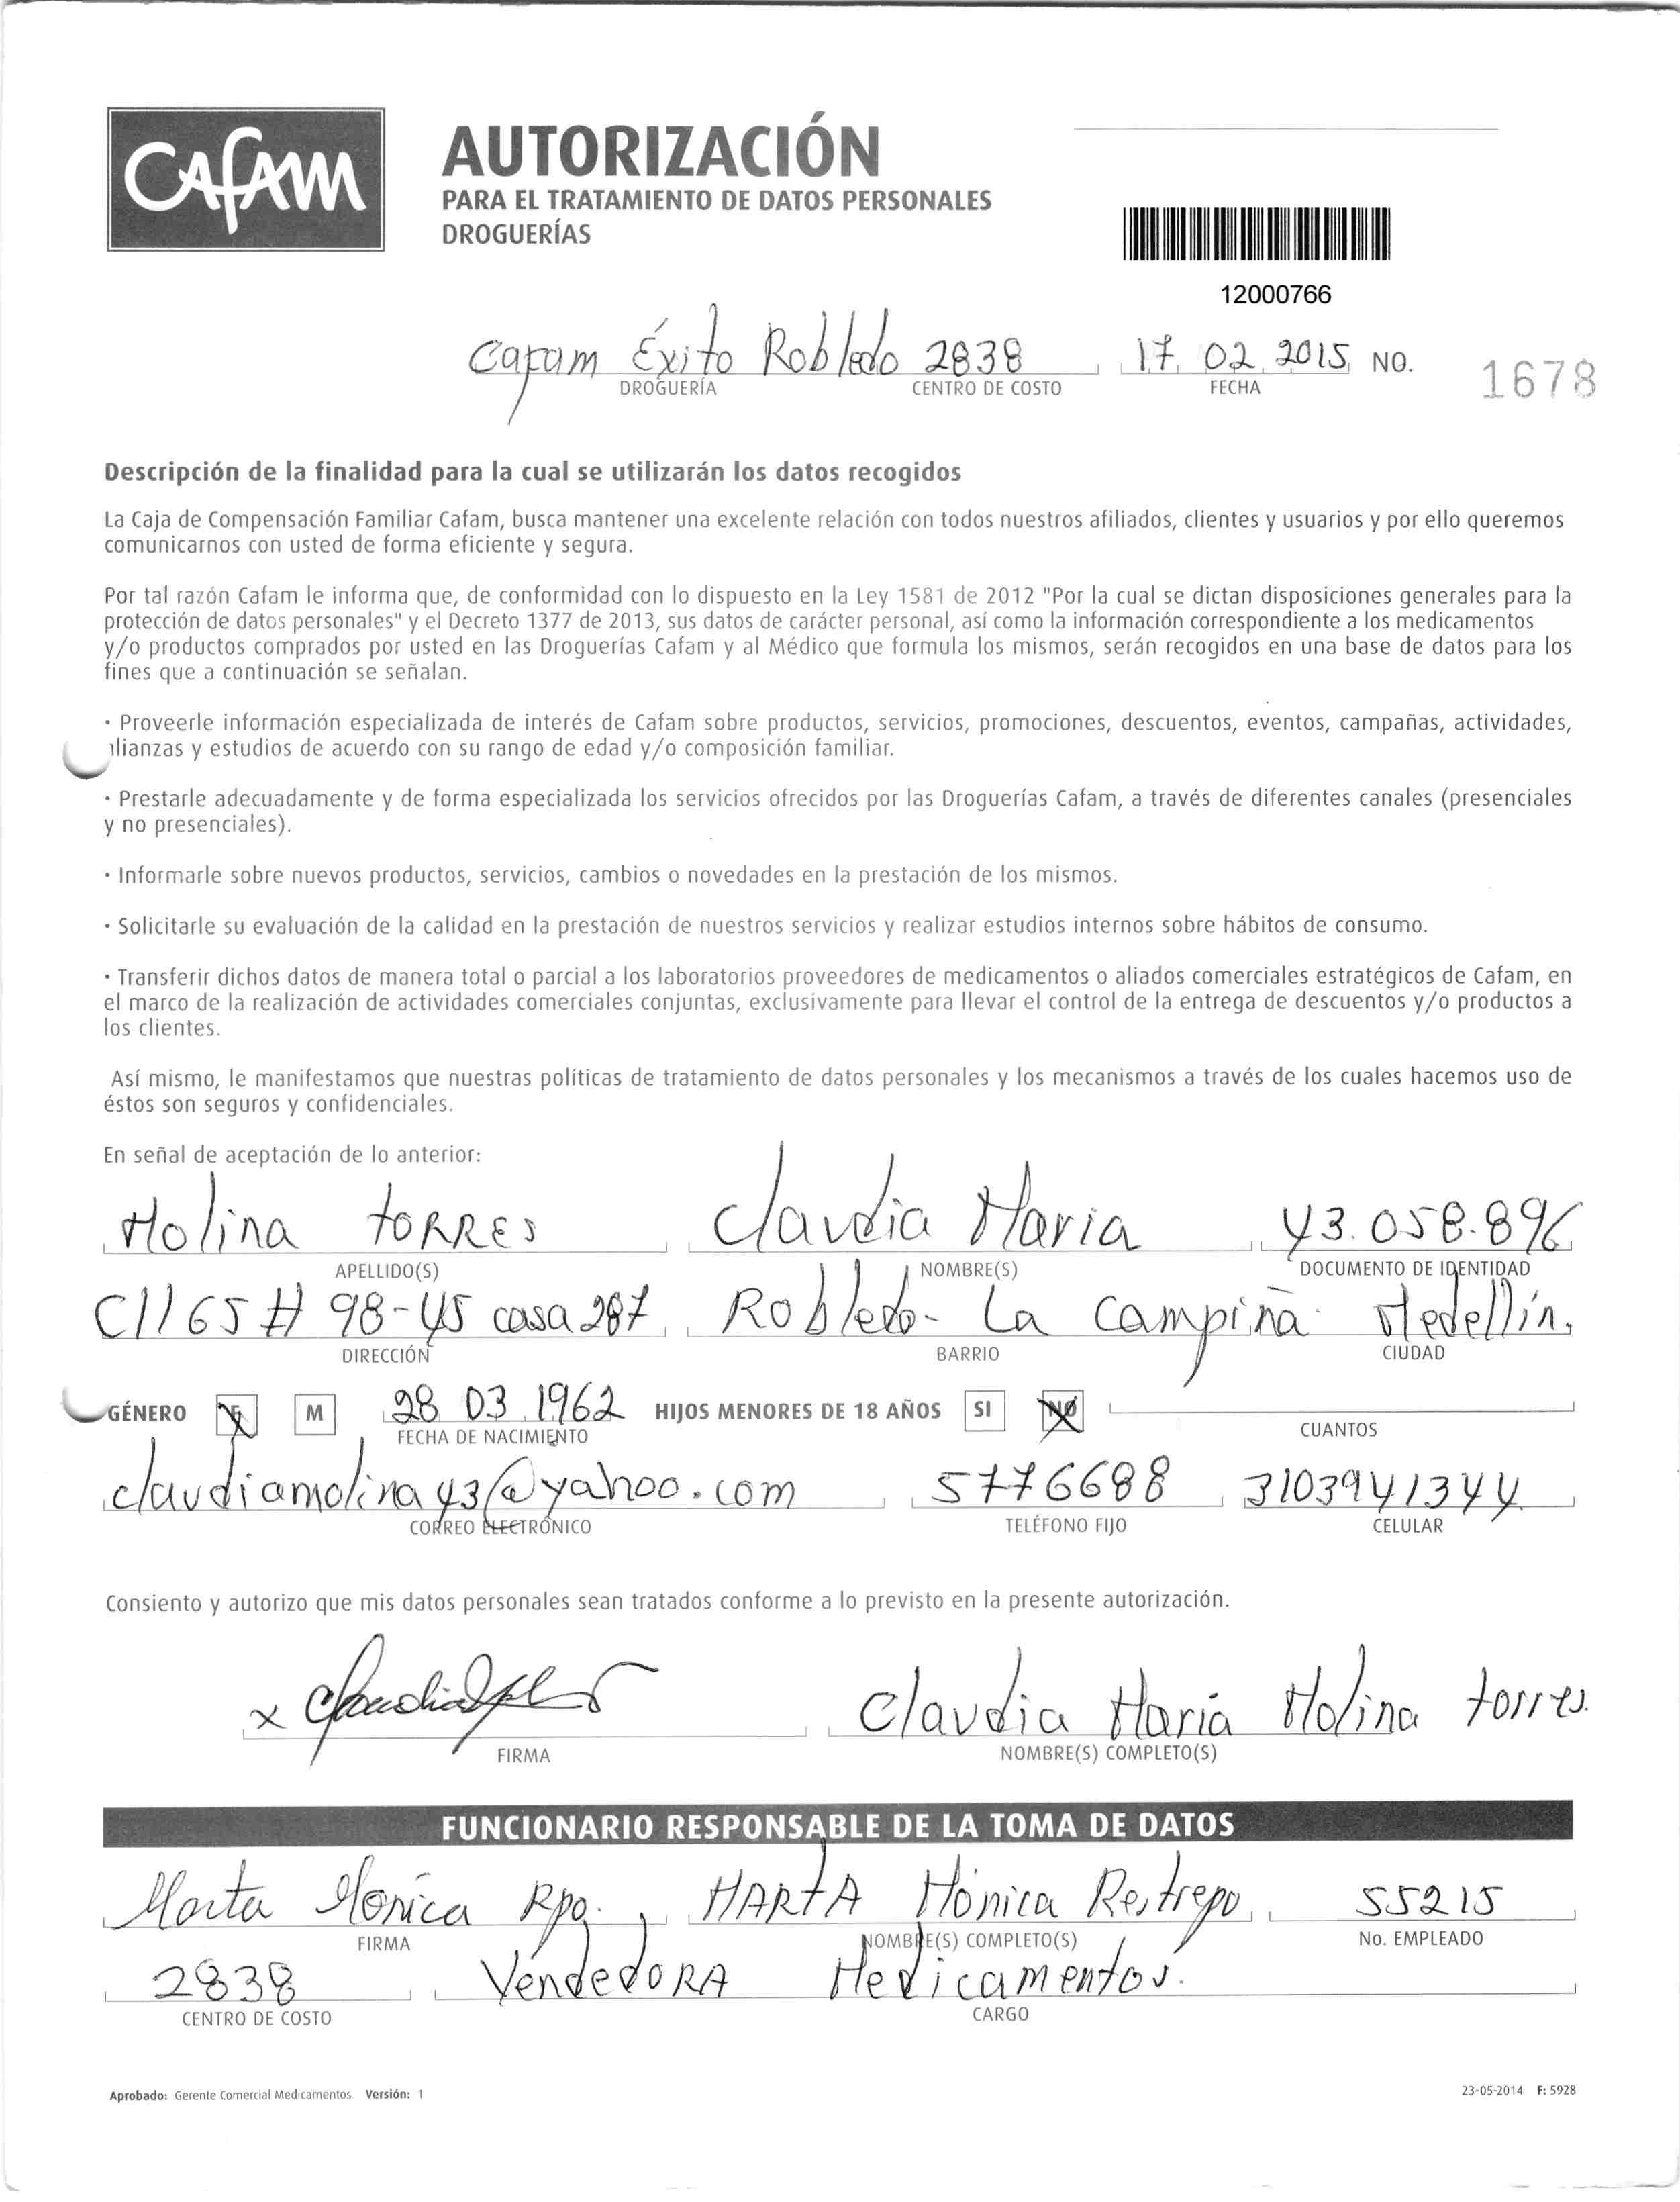 Cafam
AUTORIZACIÓN
PARA EL TRATAMIENTO DE DATOS PERSONALES
DROGUERÍAS
12000766
Cafam Éxito Robledo 2838 17 02 2015 NO. 1678
DROGUERÍA CENTRO DE COSTO FECHA
Descripción de la finalidad para la cual se utilizarán los datos recogidos
La Caja de Compensación Familiar Cafam, busca mantener una excelente relación con todos nuestros afiliados, clientes y usuarios y por ello queremos
comunicarnos con usted de forma eficiente y segura.
Por tal razón Cafam le informa que, de conformidad con lo dispuesto en la Ley 1581 de 2012 "Por la cual se dictan disposiciones generales para la
protección de datos personales" y el Decreto 1377 de 2013, sus datos de carácter personal, así como la información correspondiente a los medicamentos
y/o productos comprados por usted en las Droguerías Cafam y al Médico que formula los mismos, serán recogidos en una base de datos para los
fines que a continuación se señalan.
· Proveerle información especializada de interés de Cafam sobre productos, servicios, promociones, descuentos, eventos, campañas, actividades,
alianzas y estudios de acuerdo con su rango de edad y/o composición familiar.
· Prestarle adecuadamente y de forma especializada los servicios ofrecidos por las Droguerías Cafam, a través de diferentes canales (presenciales
y no presenciales).
· Informarle sobre nuevos productos, servicios, cambios o novedades en la prestación de los mismos.
· Solicitarle su evaluación de la calidad en la prestación de nuestros servicios y realizar estudios internos sobre hábitos de consumo.
· Transferir dichos datos de manera total o parcial a los laboratorios proveedores de medicamentos o aliados comerciales estratégicos de Cafam, en
el marco de la realización de actividades comerciales conjuntas, exclusivamente para llevar el control de la entrega de descuentos y/o productos a
los clientes.
Así mismo, le manifestamos que nuestras políticas de tratamiento de datos personales y los mecanismos a través de los cuales hacemos uso de
éstos son seguros y confidenciales.
En señal de aceptación de lo anterior:
Molina torres Claudia Maria 43.058.896
APELLIDO(S) NOMBRE(S) DOCUMENTO DE IDENTIDAD
Cll 65 # 98-45 casa 287 Robledo- La Campiña Medellín.
DIRECCIÓN BARRIO CIUDAD
GÉNERO F M 28 03 1962 HIJOS MENORES DE 18 AÑOS SI NO
FECHA DE NACIMIENTO CUANTOS
claudiamolina43@yahoo.com 5776688 3103941344
CORREO ELECTRÓNICO TELÉFONO FIJO CELULAR
Consiento y autorizo que mis datos personales sean tratados conforme a lo previsto en la presente autorización.
x Claudia Maria Molina torres.
FIRMA NOMBRE(S) COMPLETO(S)
FUNCIONARIO RESPONSABLE DE LA TOMA DE DATOS
Marta Monica Rpo. MARTA Mónica Restrepo 55215
FIRMA NOMBRE(S) COMPLETO(S) No. EMPLEADO
2838 Vendedora Medicamentos.
CENTRO DE COSTO CARGO
Aprobado: Gerente Comercial Medicamentos Versión: 1 23-05-2014 F: 5928